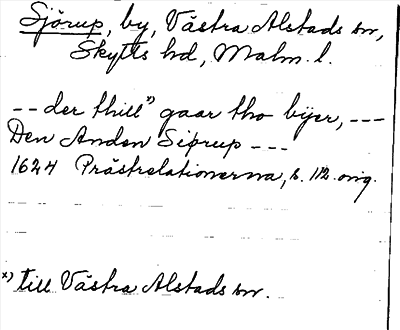 Sjörup, by, Västra Alstads sn,
Skytts hd, Malm. l.
-- der thill*) gaar tho byer, ---
Den Anden Siørup ---
1624 Prästrelationerna, s. 112. orig.
*) till Västra Alstads sn.